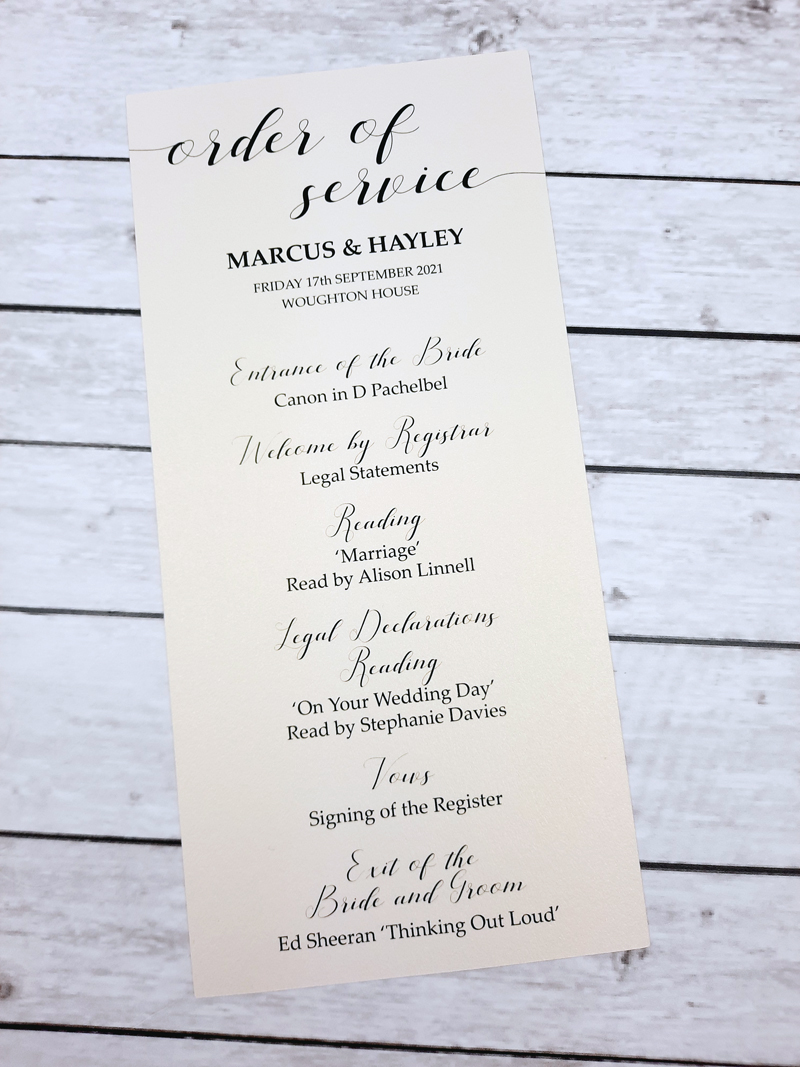 order of
service
MARCUS & HAYLEY
FRIDAY 17th SEPTEMBER 2021
WOUGHTON HOUSE
Entrance of the Bride
Canon in D Pachelbel
Welcome by Registrar
Legal Statements
Reading
‘Marriage’
Read by Alison Linnell
Legal Declarations
Reading
‘On Your Wedding Day’
Read by Stephanie Davies
Vows
Signing of the Register
Exit of the
Bride and Groom
Ed Sheeran ‘Thinking Out Loud’